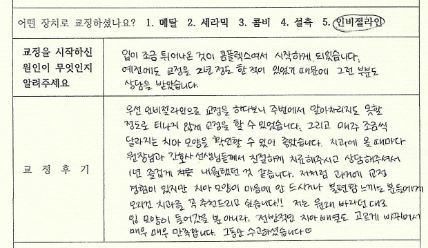 어떤 장치로 교정하셨나요? 1. 메탈 2. 세라믹 3. 콤비 4. 설측 5. 인비절라인
교정을 시작하신
원인이 무엇인지
알려주세요
입이 조금 튀어나온 것이 콤플렉스여서 시작하게 되었습니다.
예전에도 교정을 2년 정도 한 적이 있었기 때문에 그런 부분도
상담을 받았습니다.
교 정 후 기
우선 인비절라인으로 교정을 하다보니 주변에서 알아차리지 못할
정도로 티나지 않게 교정을 할 수 있었습니다. 그리고 매주 조금씩
달라지는 치아 모양을 확인할 수 있어 좋았습니다. 치과에 올 때마다
원장님과 간호사 선생님들께서 친절하게 치료해주시고 상담해주셔서
1년 즐겁게 내원했던 것 같습니다. 저처럼 과거에 교정
경험이 있지만 치아 모양이 마음에 안 드시거나 불편함 느끼는 분들에게
치과를 꼭 추천드리고 싶습니다!! 저는 원래 바라던 대로
입 모양이 들어갔을 뿐 아니라, 전반적인 치아 배열도 고르게 바뀌어서
매우 매우 만족합니다. 그동안 수고하셨습니다♡